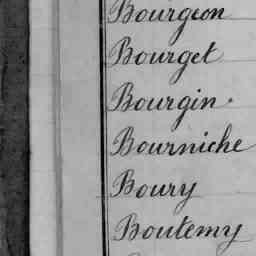 Bourgeon
Bourget
Bourgin
Bourniche
Boury
Boutemy